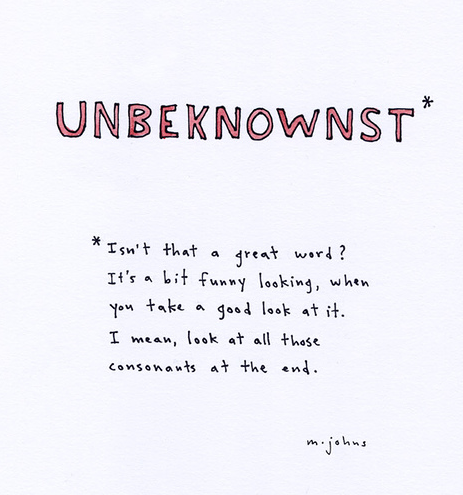 UNBEKNOWNST*
*Isn't that a great word?
It's a bit funny looking, when
you take a good look at it.
I mean, look at all those
consonants at the end.
m.johns